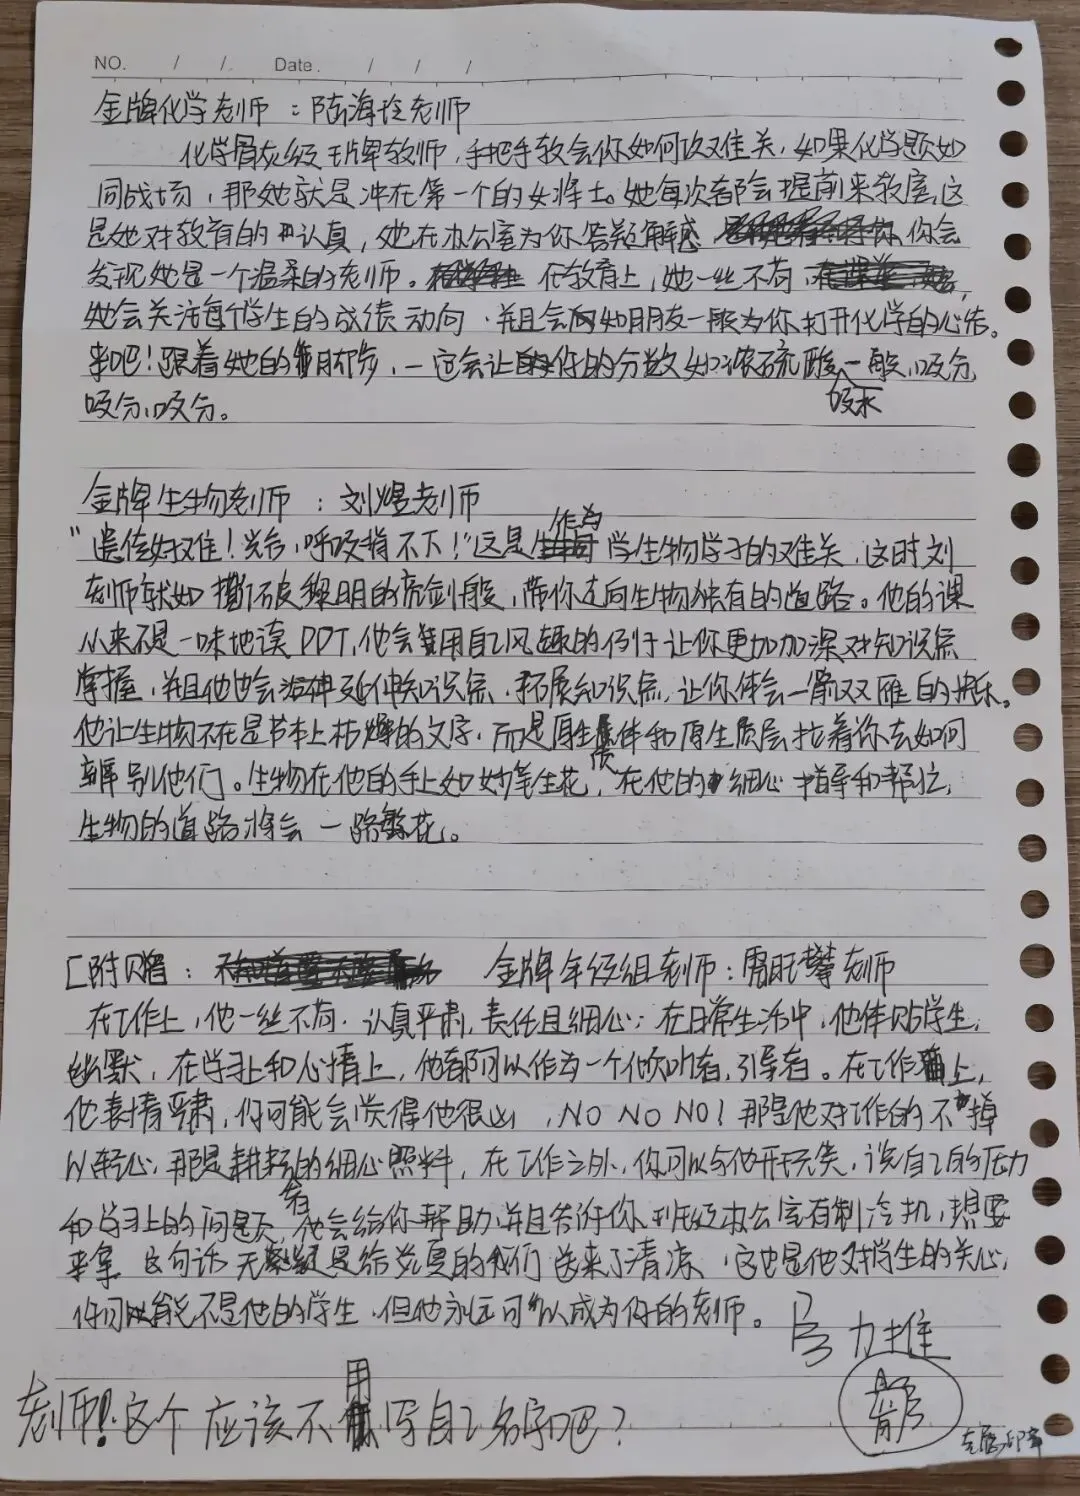 NO. / / Date. / / /
金牌化学老师：陆海玲老师
化学骨灰级王牌教师，手把手教会你如何攻难关，如果化学题如
同战场，那她就是冲在第一个的女将士。她每次都会提前来教室，这
是她对教育的认真，她在办公室为你答疑解惑 你会
发现她是一个温柔的老师。在教育上，她一丝不苟，
她会关注每个学生的成绩动向，并且会如朋友一般为你打开化学的心结。
来吧！跟着她的脚步，一定会让你的分数如浓硫酸吸水一般，吸分，
吸分，吸分。
金牌生物老师：刘煜老师
“遗传好难！光合，呼吸稍不下！”这是作为学生物学子的难关，这时刘
老师就如撕破黎明的亮剑般，带你走向生物独有的道路。他的课
从来不是一味地读PPT，他会用自己风趣的例子让你更加加深对知识点
掌握，并且他也会延伸知识点，拓展知识点，让你体会一箭双雁的快乐。
他让生物不在是书本上枯燥的文字，而是原生质体和原生质层拉着你去如何
辨别他们。生物在他的手上如妙笔生花，在他的细心指导和帮忙，
生物的道路将会一路繁花。
[附赠： 金牌年级组老师：旺攀老师
在工作上，他一丝不苟，认真严肃，责任且细心；在日常生活中，他体贴学生，
幽默，在学习上和心情上，他都可以作为一个倾听者，引导者。在工作上，
他表情严肃，你可能会觉得他很凶，NO NO NO！那是他对工作的不掉
以轻心，那是耕耘者的细心照料，在工作之外，你可以与他开玩笑，说自己的压力
和学习上的问题，他会给你帮助，并且告诉你，年级办公室有制冷机，想要
来拿，这句话无疑是给炎夏的我们送来了清凉，这也是他对学生的关心，
你可能不是他的学生，但他永远可以成为你的老师。
力推
老师！这个应该不用写自己名字吧？